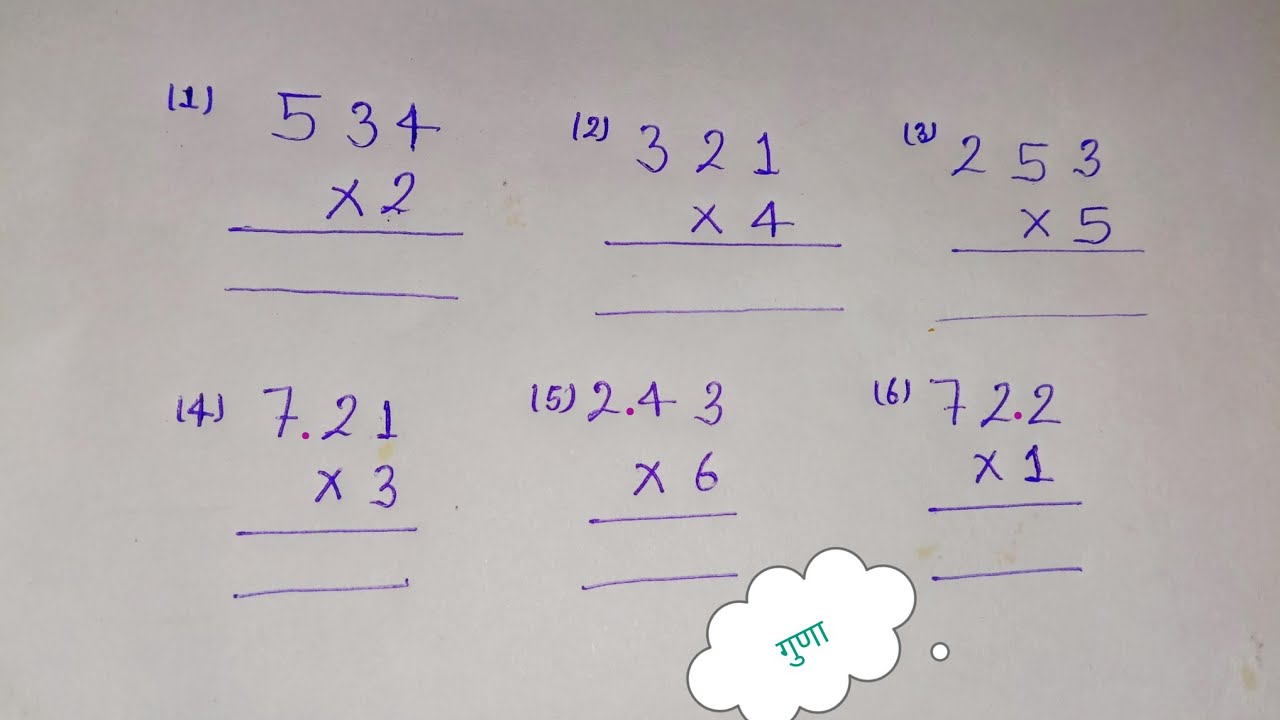 (1) 534
× 2
(2) 321
× 4
(3) 253
× 5
(4) 7.21
× 3
(5) 2.43
× 6
(6) 72.2
× 1
गुणा